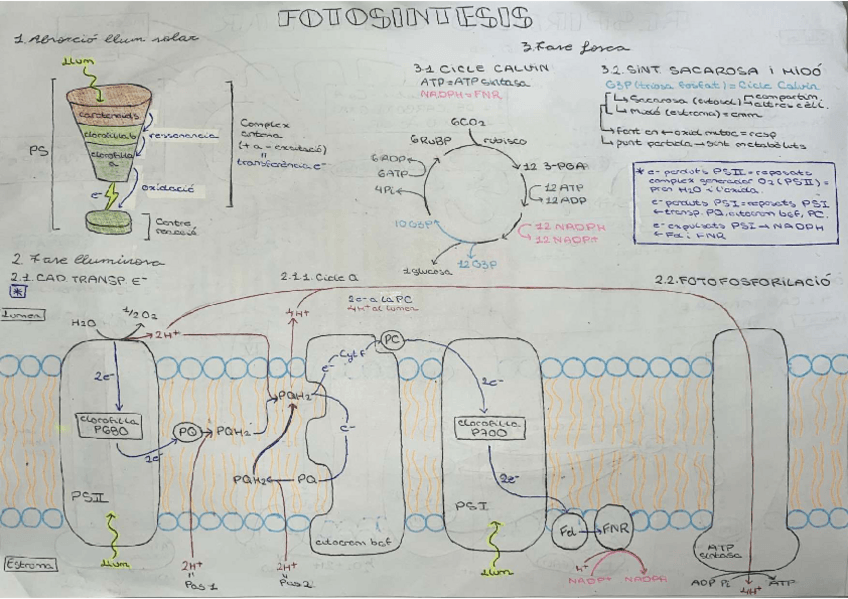 FOTOSINTESIS
1. Absorció llum solar
llum
PS
carotenoids
clorofil·la b
clorofil·la a
ressonancia
e-
oxidació
Centre reacció
Complex
antena
(+ a - excitació)
"
transferència e-
3. Fase fosca
3.1 CICLE CALVIN
ATP = ATP sintasa
NADPH = FNR
6CO2
rubisco
6RuBP
12 3-PGA
12 ATP
12 ADP
12 NADPH
12 NADP+
12G3P
1 glucosa
10G3P
6ADP
6ATP
4Pi
3.2. SINT. SACAROSA I MIDÓ
G3P (triosa fosfat) = Cicle Calvin
Sacarosa (citosol)
compartim
altres cèl.
Midó (estroma) = emm
font en ← oxid mitoc = resp
punt partida → sint metabòlits
* e- perduts PSII = reposats
complex generador O2 (PSII) =
pren H2O i l'oxida.
e- perduts PSI = reposats PSI
← transp. PQ, citocrom b6f, PC.
e- expulsats PSI → NADPH
← Fd i FNR
2. Fase lluminosa
2.1. CAD TRANSP E-
*
2.1.1. Cicle Q
2.2. FOTOFOSFORILACIÓ
2e- a la PC
4H+ al lumen
Lumen
H2O
1/2 O2
2H+
4H+
2e-
clorofil·la
P680
2e-
PQ
PQH2
PQH2
PQH2
PQ
e-
Cyt f
e-
PC
2e-
clorofil·la
P700
2e-
PSII
PSI
Fd
FNR
citocrom b6f
ATP
sintasa
Estroma
llum
2H+
"
Pas 1
2H+
"
Pas 2
llum
H+
NADP+
NADPH
ADP Pi
ATP
4H+